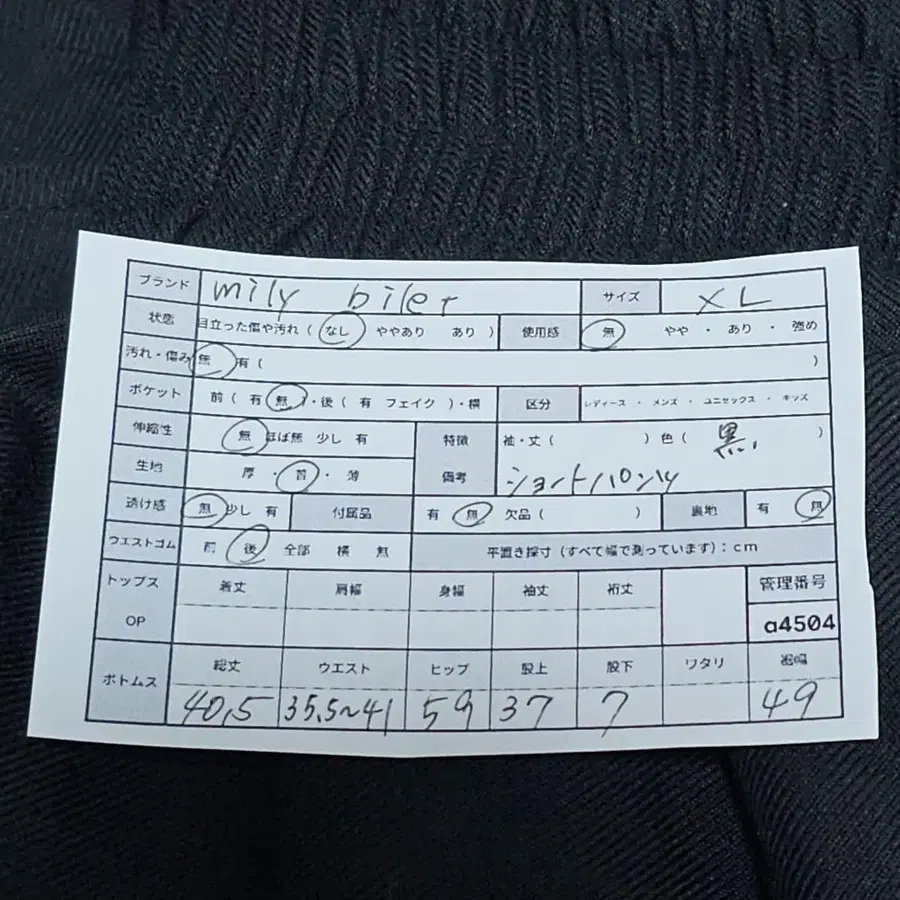 ブランド mily biler サイズ XL
状態 目立った傷や汚れ ( なし ややあり あり ) 使用感 無 やや ・ あり ・ 強め
汚れ・傷み 無 有 ( )
ポケット 前 ( 有 無 )・後 ( 有 フェイク )・横 区分 レディース ・ メンズ ・ ユニセックス ・ キッズ
伸縮性 無 ほぼ無 少し 有 特徴 袖・丈 ( ) 色 ( 黒 )
生地 厚 ・ 普 ・ 薄 備考 ショートパンツ
透け感 無 少し 有 付属品 有 無 欠品 ( ) 裏地 有 無
ウエストゴム 前 後 全部 横 無 平置き採寸 (すべて幅で測っています) : cm
トップス 着丈 肩幅 身幅 袖丈 裄丈 管理番号
OP a4504
ボトムス 総丈 ウエスト ヒップ 股上 股下 ワタリ 裾幅
40,5 35,5~41 59 37 7 49